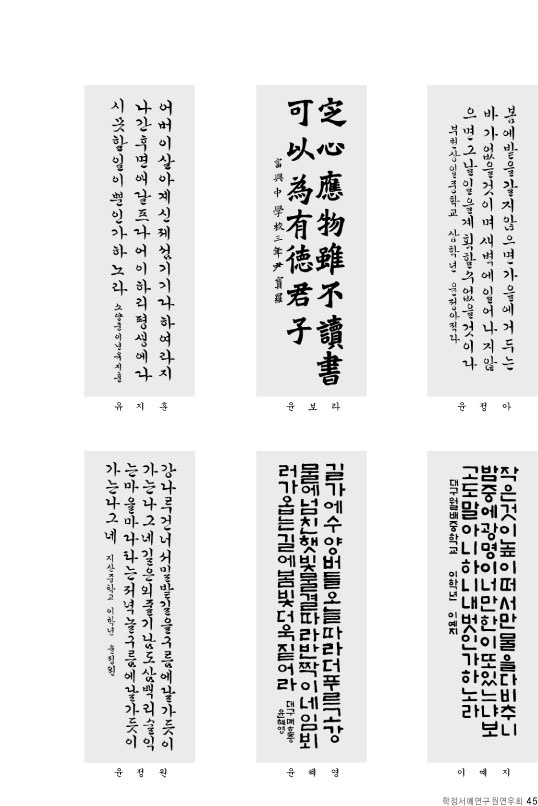 어버이살아계신제섬기기다하여라지
나간후면애달프다어이하리평생에다
시못할일이뿐인가하노라
유지훈
定心應物雖不讀書
可以為有德君子
富興中學校三年尹寶羅
윤보라
봄에밭을갈지않으면가을에거두는
바가없을것이며새벽에일어나지않
으면그날일을계획할수없을것이다
부천상일중학교 삼학년 윤정아적다
윤정아
강나루건너서밀밭길을구름에달가듯이
가는나그네길은외줄기남도삼백리술익
는마을마다타는저녁놀구름에달가듯이
가는나그네
지산중학교 이학년 윤정원
윤정원
길가에수양버들오늘따라더푸르고강
물에넘친햇빛물결따라반짝이네임뵈
러가옵는길에봄빛더욱짙어라
윤혜영
윤혜영
작은것이높이떠서만물을다비추니
밤중에광명이너만한이또있느냐보
고도말아니하니내벗인가하노라
대구월배중학교 이학년 이예지
이예지
학정서예연구원연우회 45